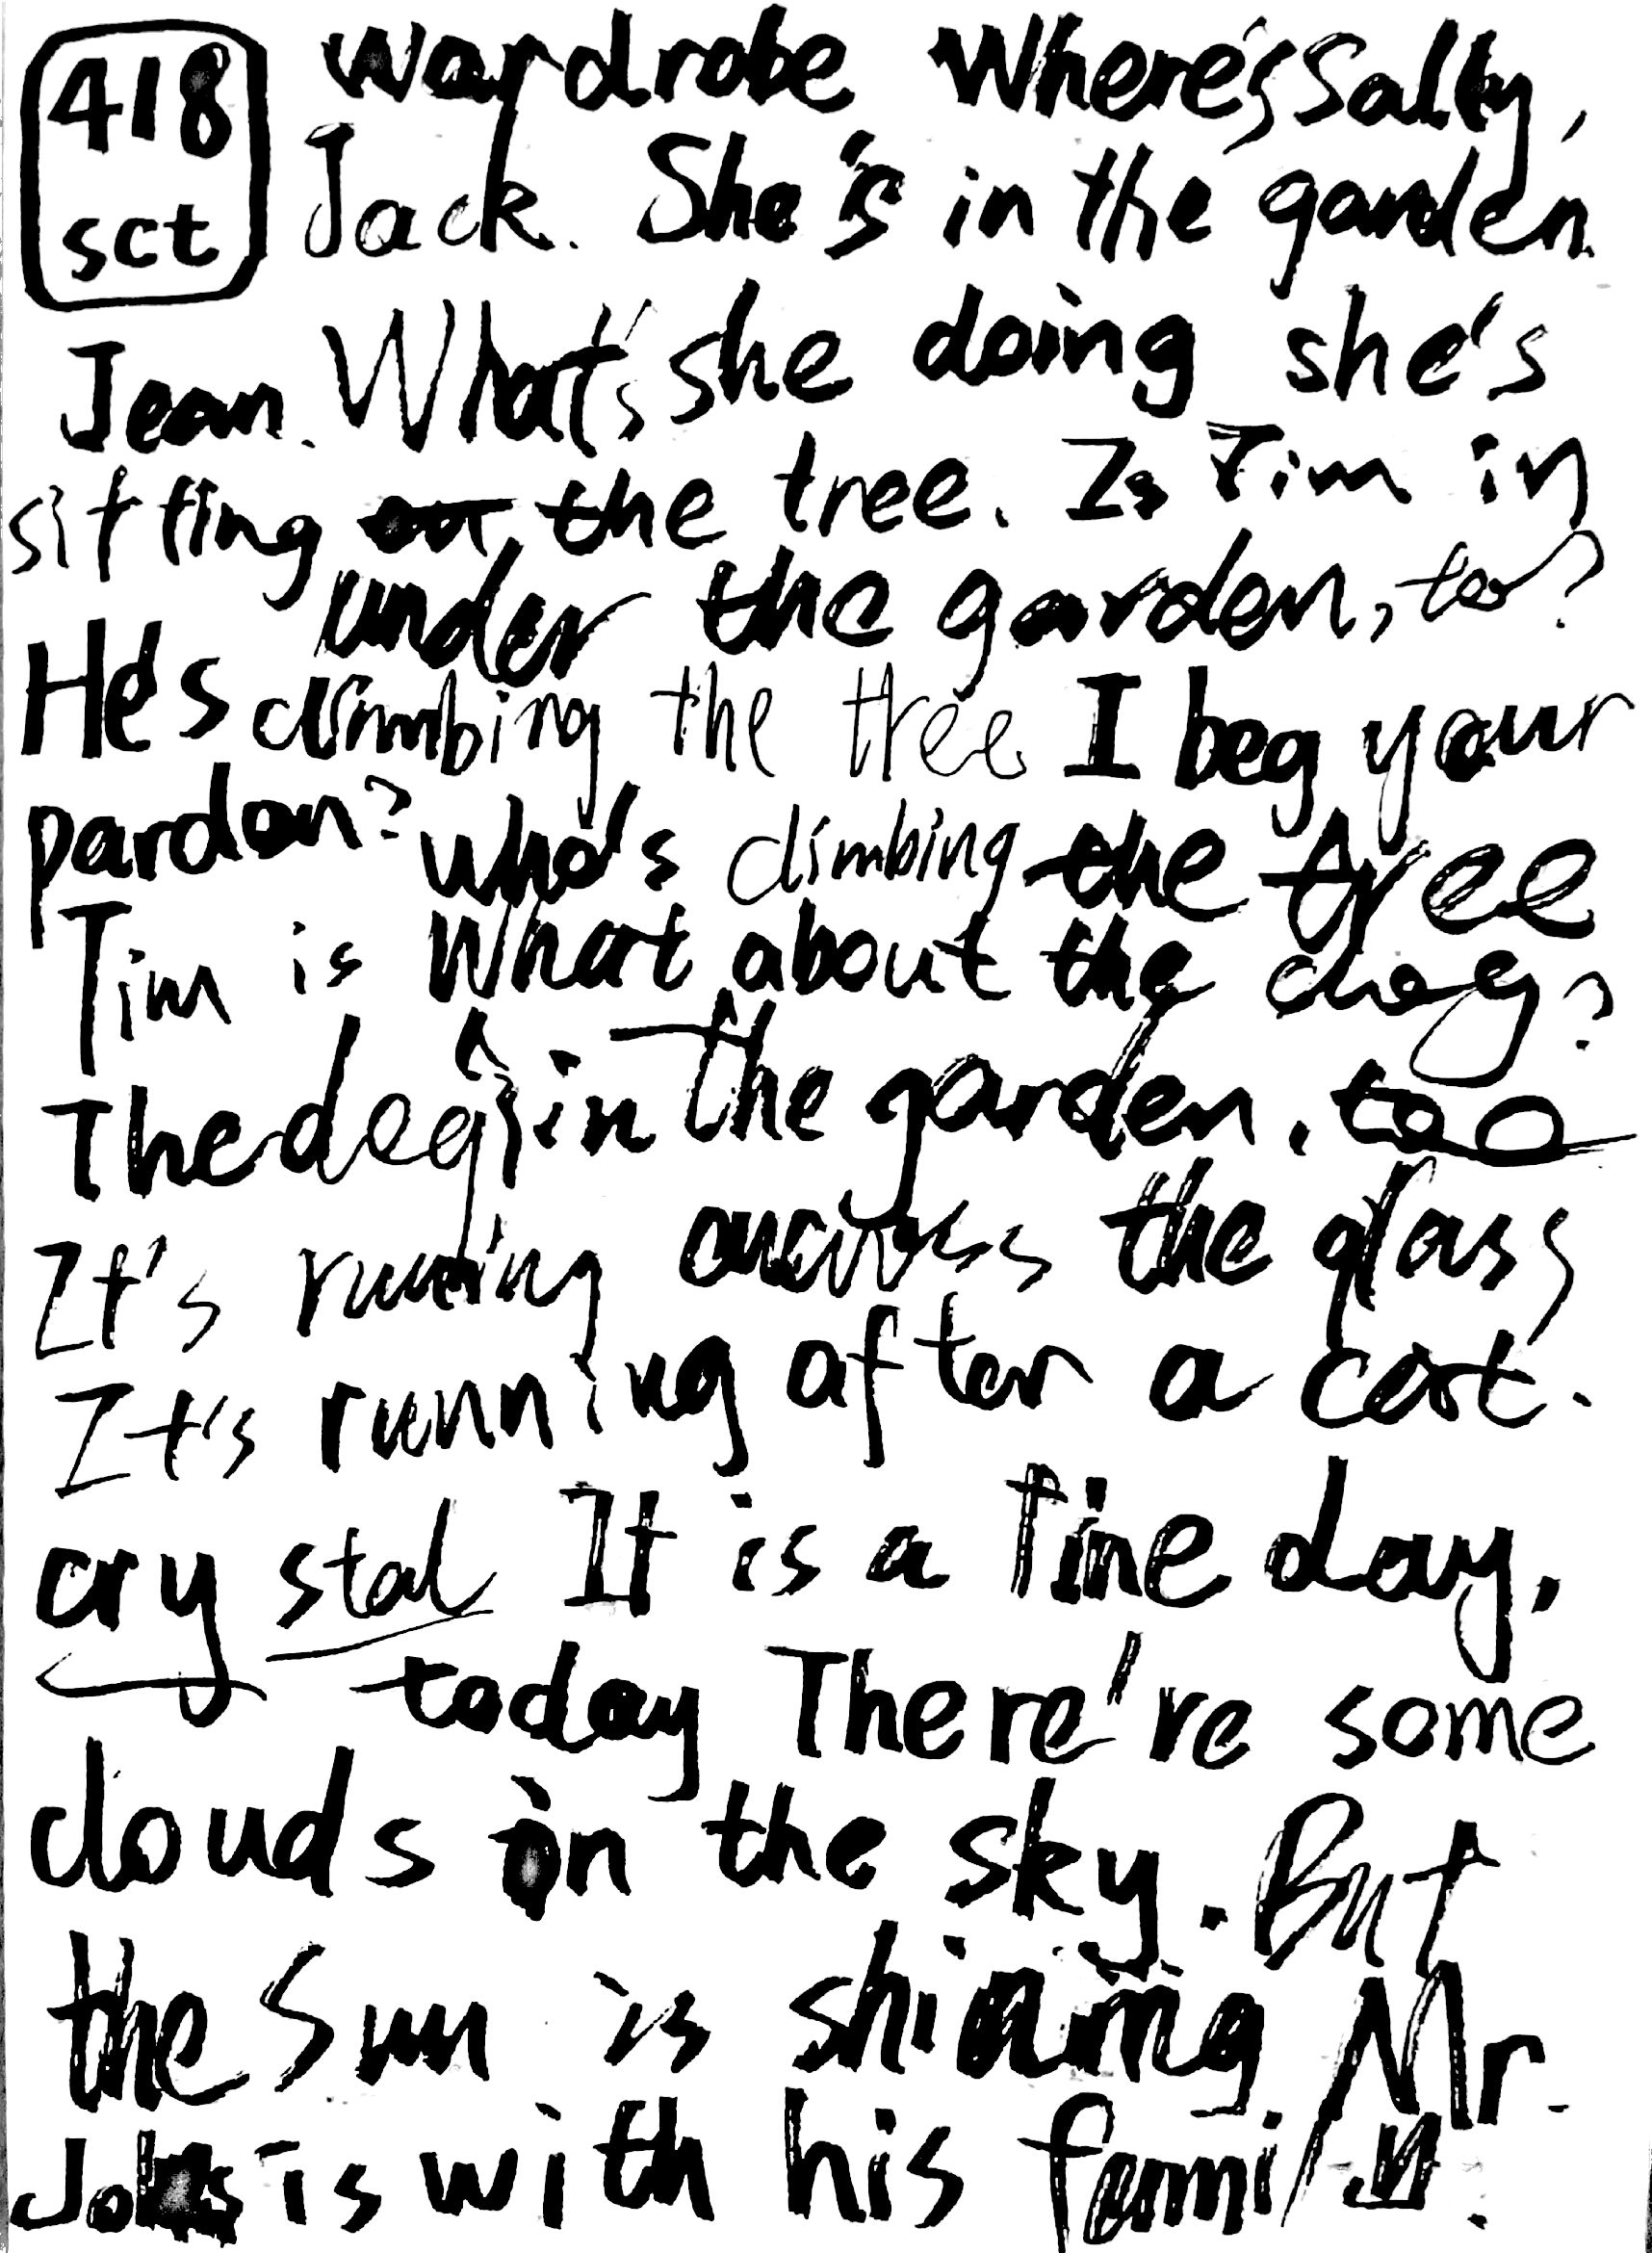 418
sct
wardrobe Where's Sally,
Jack. She's in the garden.
Jean. What's she doing she's
sitting the tree. Is Tim in
under the garden, too?
He's climbing the tree I beg your
pardon? who's climbing the tree
Tim is What about the dog?
The dog's in the garden, too
It's running across the glass
It's running after a cat.
crystal It is a fine day,
today There're some
clouds in the sky. But
the Sun is shining Mr.
is with his family.